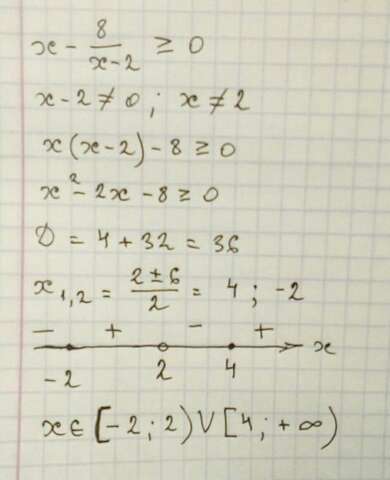 x - 8/(x-2) ≥ 0
x - 2 ≠ 0 ; x ≠ 2
x(x-2) - 8 ≥ 0
x² - 2x - 8 ≥ 0
D = 4 + 32 = 36
x₁,₂ = (2 ± 6)/2 = 4 ; -2
- + - +
-2 2 4 x
x ∈ [-2 ; 2) ∨ [4 ; +∞)